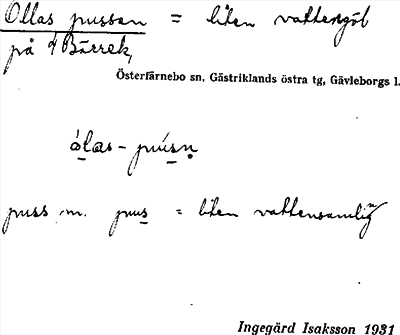 Ollas pussen = liten vattengöl
på Bärrek,
Österfärnebo sn, Gästriklands östra tg, Gävleborgs l.
ólas - puúsn
puss m. puus = liten vattensamling
Ingegärd Isaksson 1931